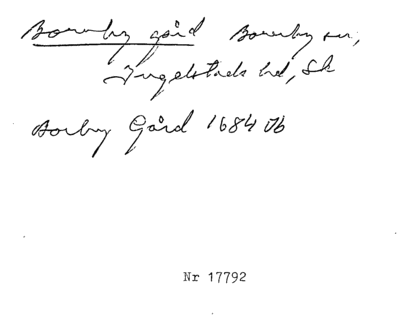 Borrby gård Borrby sn,
Ingelstads hd, Sk
Borby Gård 1684 Jb
Nr 17792